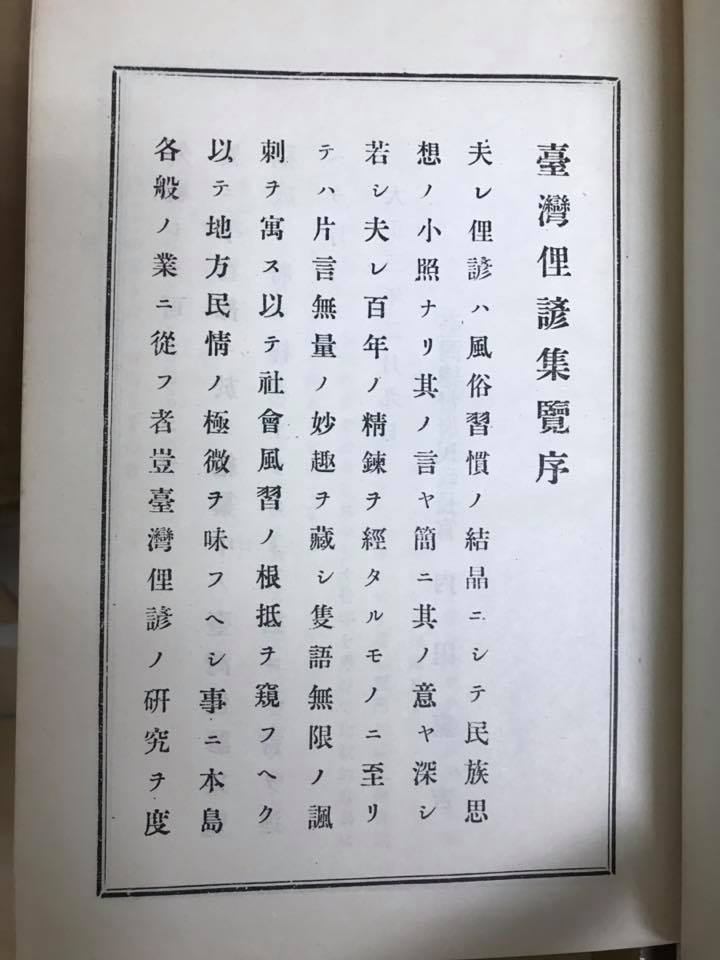 臺灣俚諺集覽序
夫レ俚諺ハ風俗習慣ノ結晶ニシテ民族思
想ノ小照ナリ其ノ言ヤ簡ニ其ノ意ヤ深シ
若シ夫レ百年ノ精鍊ヲ經タルモノニ至リ
テハ片言無量ノ妙趣ヲ藏シ隻語無限ノ諷
刺ヲ寓ス以テ社會風習ノ根抵ヲ窺フヘク
以テ地方民情ノ極微ヲ味フヘシ事ニ本島
各般ノ業ニ從フ者豈臺灣俚諺ノ研究ヲ度